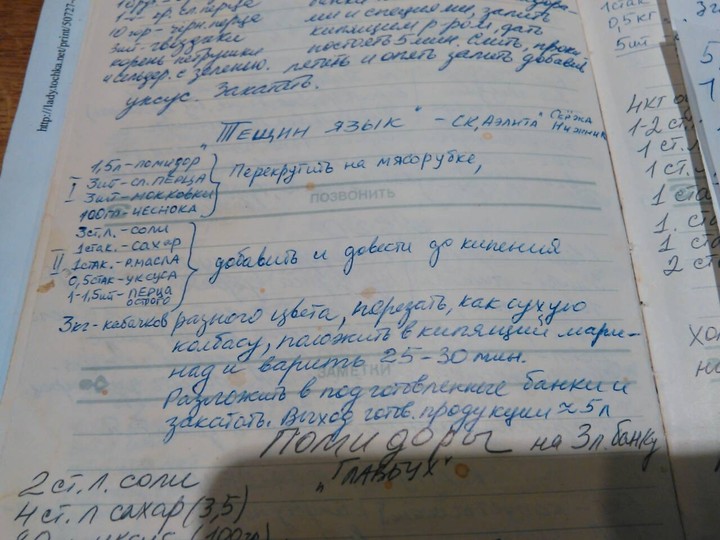 1-2 гр. сл. перца
10 гр - чёрн. перца
3 шт - гвоздики
корень петрушки
и сельдер. с зеленью.
ми и специями, залить
кипящим р-ром, дать
постоять 5 мин. Слить, проки-
пятить и опять залить добавив
уксус. Закатать.
http://lady.tochka.net/print/50727-
"ТЕЩИН ЯЗЫК" - СК, АЭЛИТА" СЕРЁЖА
1,5л - ПОМИДОР
I 3шт - СЛ. ПЕРЦА
3шт - МОРКОВКИ
100гр - ЧЕСНОКА
Перекрутить на мясорубке,
ПОЗВОНИТЬ
3ст.л. - СОЛИ
1стак. - САХАР
II 1стак. - Р.МАСЛА
0,5стак - УКСУСА
1-1,5шт - ПЕРЦА
ОСТРОГО
добавить и довести до кипения
3кг - кабачков разного цвета, порезать, как сухую
колбасу, положить в кипящий мари-
над и варить 25-30 мин.
ЗАМЕТКИ
Разложить в подготовленные банки и
закатать. Выход готов. продукции ≈ 5л
Помидоры на 3л. банку
"ГЛАВБУХ"
2 ст. л. соли
4 ст. л сахар (3,5)
1 стак
0,5 кг
5 шт
4 кг
1-2 ст.
1 ст. л
1 ст.
1 ста
1. ста
1 ст.
2 ст